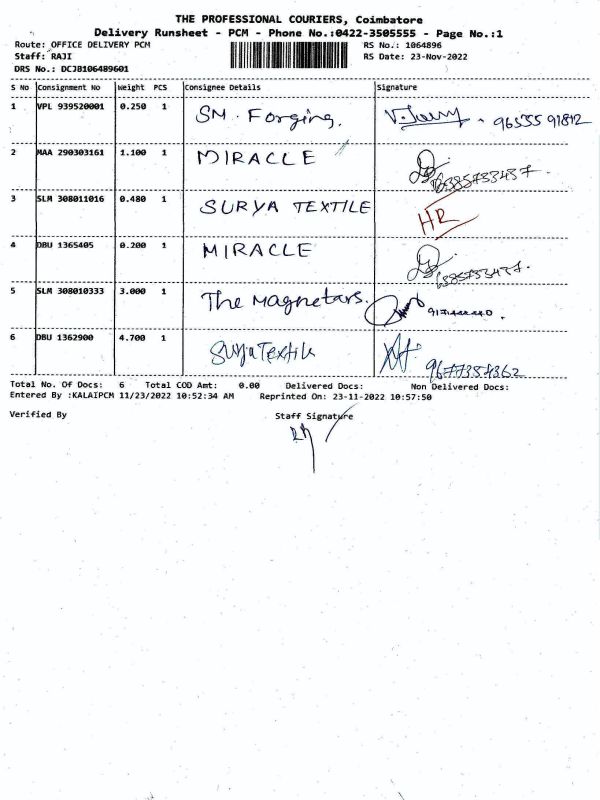 THE PROFESSIONAL COURIERS, Coimbatore
Delivery Runsheet - PCM - Phone No.:0422-3505555 - Page No.:1
Route: OFFICE DELIVERY PCM RS No.: 1064896
Staff: RAJI RS Date: 23-Nov-2022
DRS No.: DCJB106489601
S No Consignment No Weight PCS Consignee Details Signature
1 VPL 939520001 0.250 1 SM. Forging. 9655591812
2 MAA 290303161 1.100 1 MIRACLE 6385733437.
3 SLM 308011016 0.480 1 SURYA TEXTILE HR
4 DBU 1365405 0.200 1 MIRACLE 6385733437.
5 SLM 308010333 3.000 1 The Magnetars.
6 DBU 1362900 4.700 1 Surya Textile 9677357362
Total No. Of Docs: 6 Total COD Amt: 0.00 Delivered Docs: Non Delivered Docs:
Entered By :KALAIPCM 11/23/2022 10:52:34 AM Reprinted On: 23-11-2022 10:57:50
Verified By Staff Signature